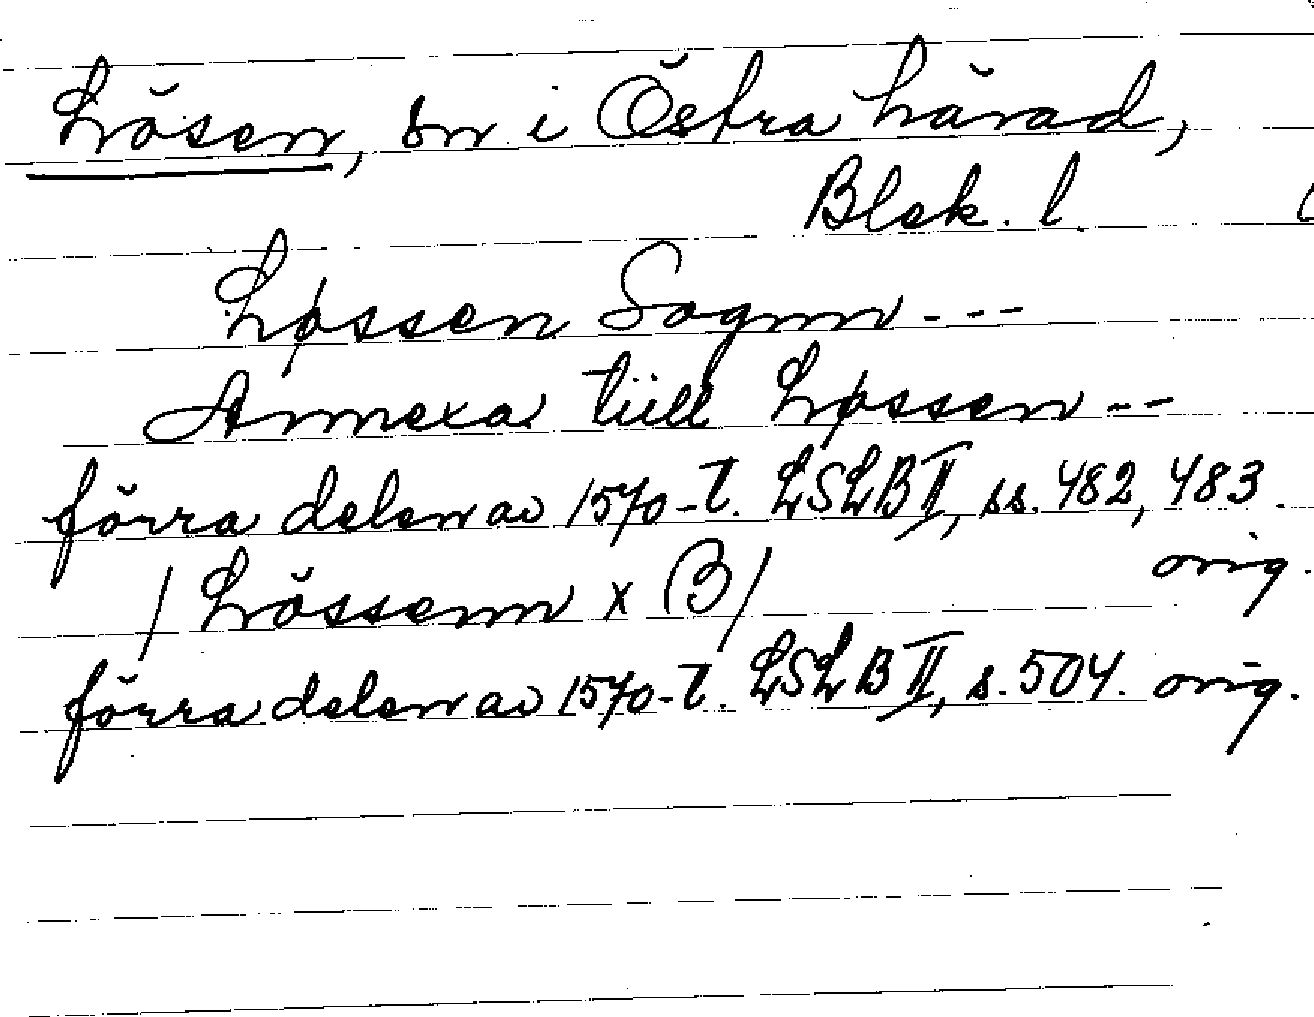 Lösen, sn i Östra härad,
Blek. l.
Løssen Sognn ---
Annexa tiill Løssen --
förra delen av 1570-t. LSLB II, ss. 482, 483.
orig.
/ Lössenn x B /
förra delen av 1570-t. LSLB II, s. 504. orig.